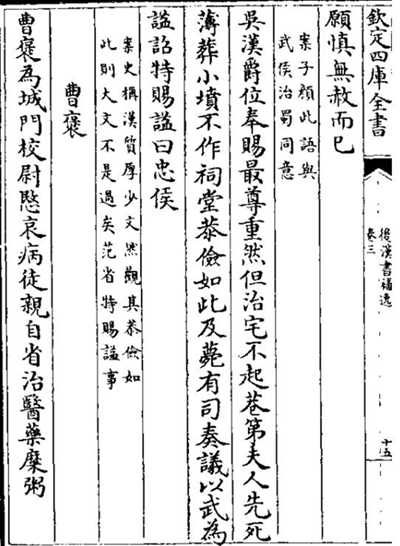 欽定四庫全書
後漢書補逸
卷三
十五
願慎無赦而已
案子顏此語與
武侯治蜀同意
吳漢爵位奉賜最尊重然但治宅不起巷第夫人先死
薄葬小墳不作祠堂恭儉如此及薨有司奏議以武為
謚詔特賜謚曰忠侯
案史稱漢質厚少文然觀其恭儉如
此則大文不是過矣范省特賜謚事
曹褒
曹褒為城門校尉愍哀病徒親自省治醫藥糜粥